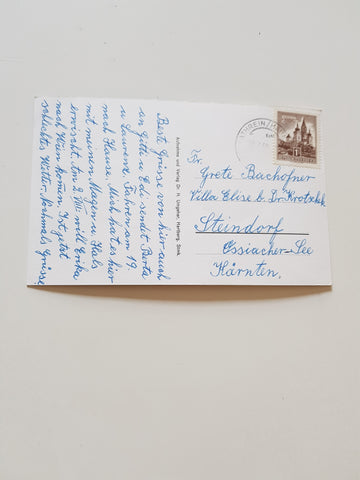 Beste Grüsse von hier auch
an Gitti u Edi sendet Berta
u Laurenz. Fahren am 19.
nach Hause. Mich hat es hier
mit meinem Magen u Hals
erwischt. Am 2. VIII. will Erika
nach Wien komen. Jetzt ist
schlechtes Wetter, nochmals Grüsse,
Aufnahme und Verlag Dr. H. Ungeher, Hartberg, Stmk.
Fr.
Grete Bachofner
Villa Elise b. Dr.
Steindorf
Ossiacher-See
Kärnten.